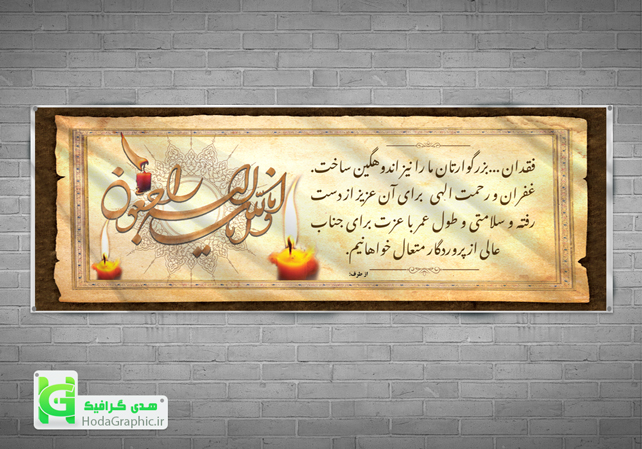 انا لله و انا الیه راجعون
فقدان ...بزرگوارتان ما را نیز اندوهگین ساخت.
غفران و رحمت الهی برای آن عزیز از دست
رفته و سلامتی و طول عمر با عزت برای جناب
عالی از پروردگار متعال خواهانیم.
از طرف:
هدی گرافیک
HodaGraphic.ir